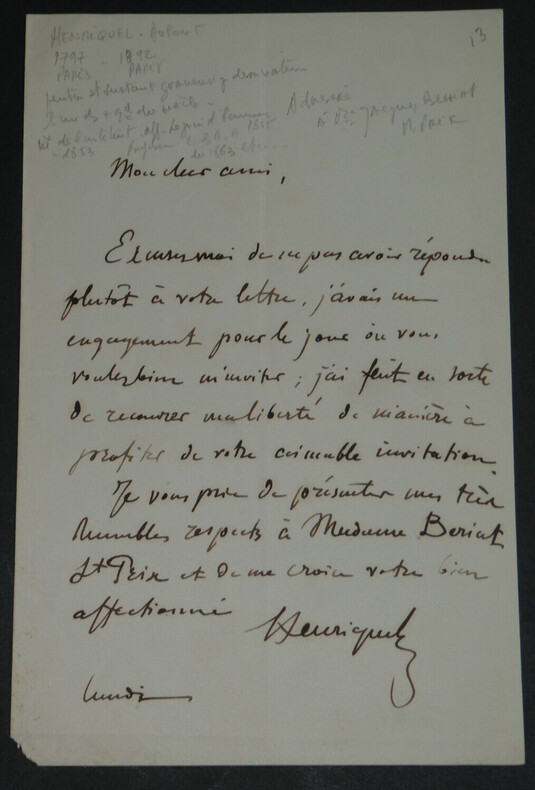 HENRIQUEL - DUPONT
13
1797 - 1892
PARIS PARIS
peintre et surtout graveur
Adressé
à Jacques Beriat
St Prix
- 1853 Professeur
de 1863
Mon cher ami,
Excusez moi de ne pas avoir répondu
plutôt à votre lettre, j'avais un
engagement pour le jour où vous
voulez bien m'inviter ; j'ai fait en sorte
de recouvrer ma liberté de manière à
profiter de votre aimable invitation.
Je vous prie de présenter mes très
humbles respects à Madame Beriat
St Prix et de me croire votre bien
affectionné
Henriquel
lundi